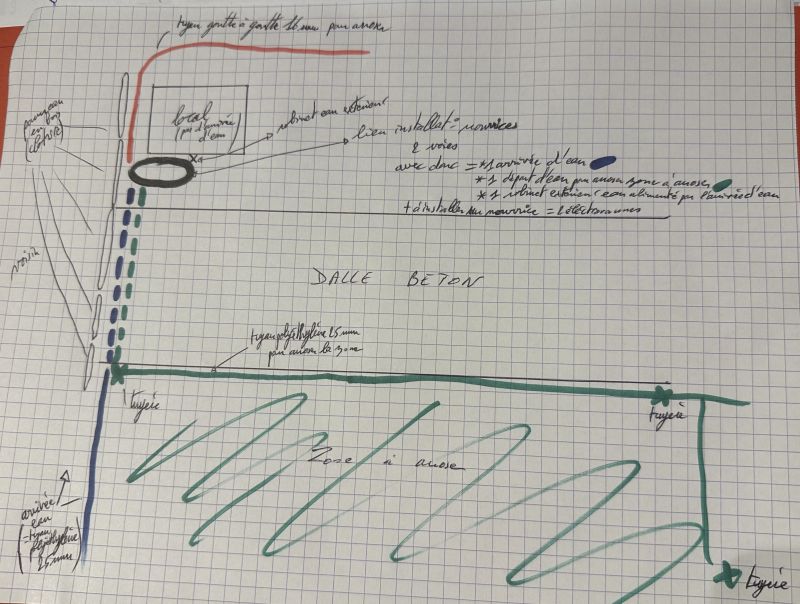 tuyau goutte à goutte 16 mm pour arroser
panneau
en bois
clôture
local
(pas d'arrivée
d'eau)
robinet eau extérieur
lieu installat° nourrices
2 voies
avec donc = * 1 arrivée d'eau
* 1 départ d'eau pour arroser zone à arroser
* 1 robinet extérieur eau alimenté par l'arrivée d'eau
+ à installer sur nourrice = 2 électrovannes
voisin
DALLE BETON
tuyau polyéthylène 25 mm
pour arroser la zone
tuyère
tuyère
Zone à arroser
arrivée
eau
= tuyau
polyéthylène
25 mm
tuyère